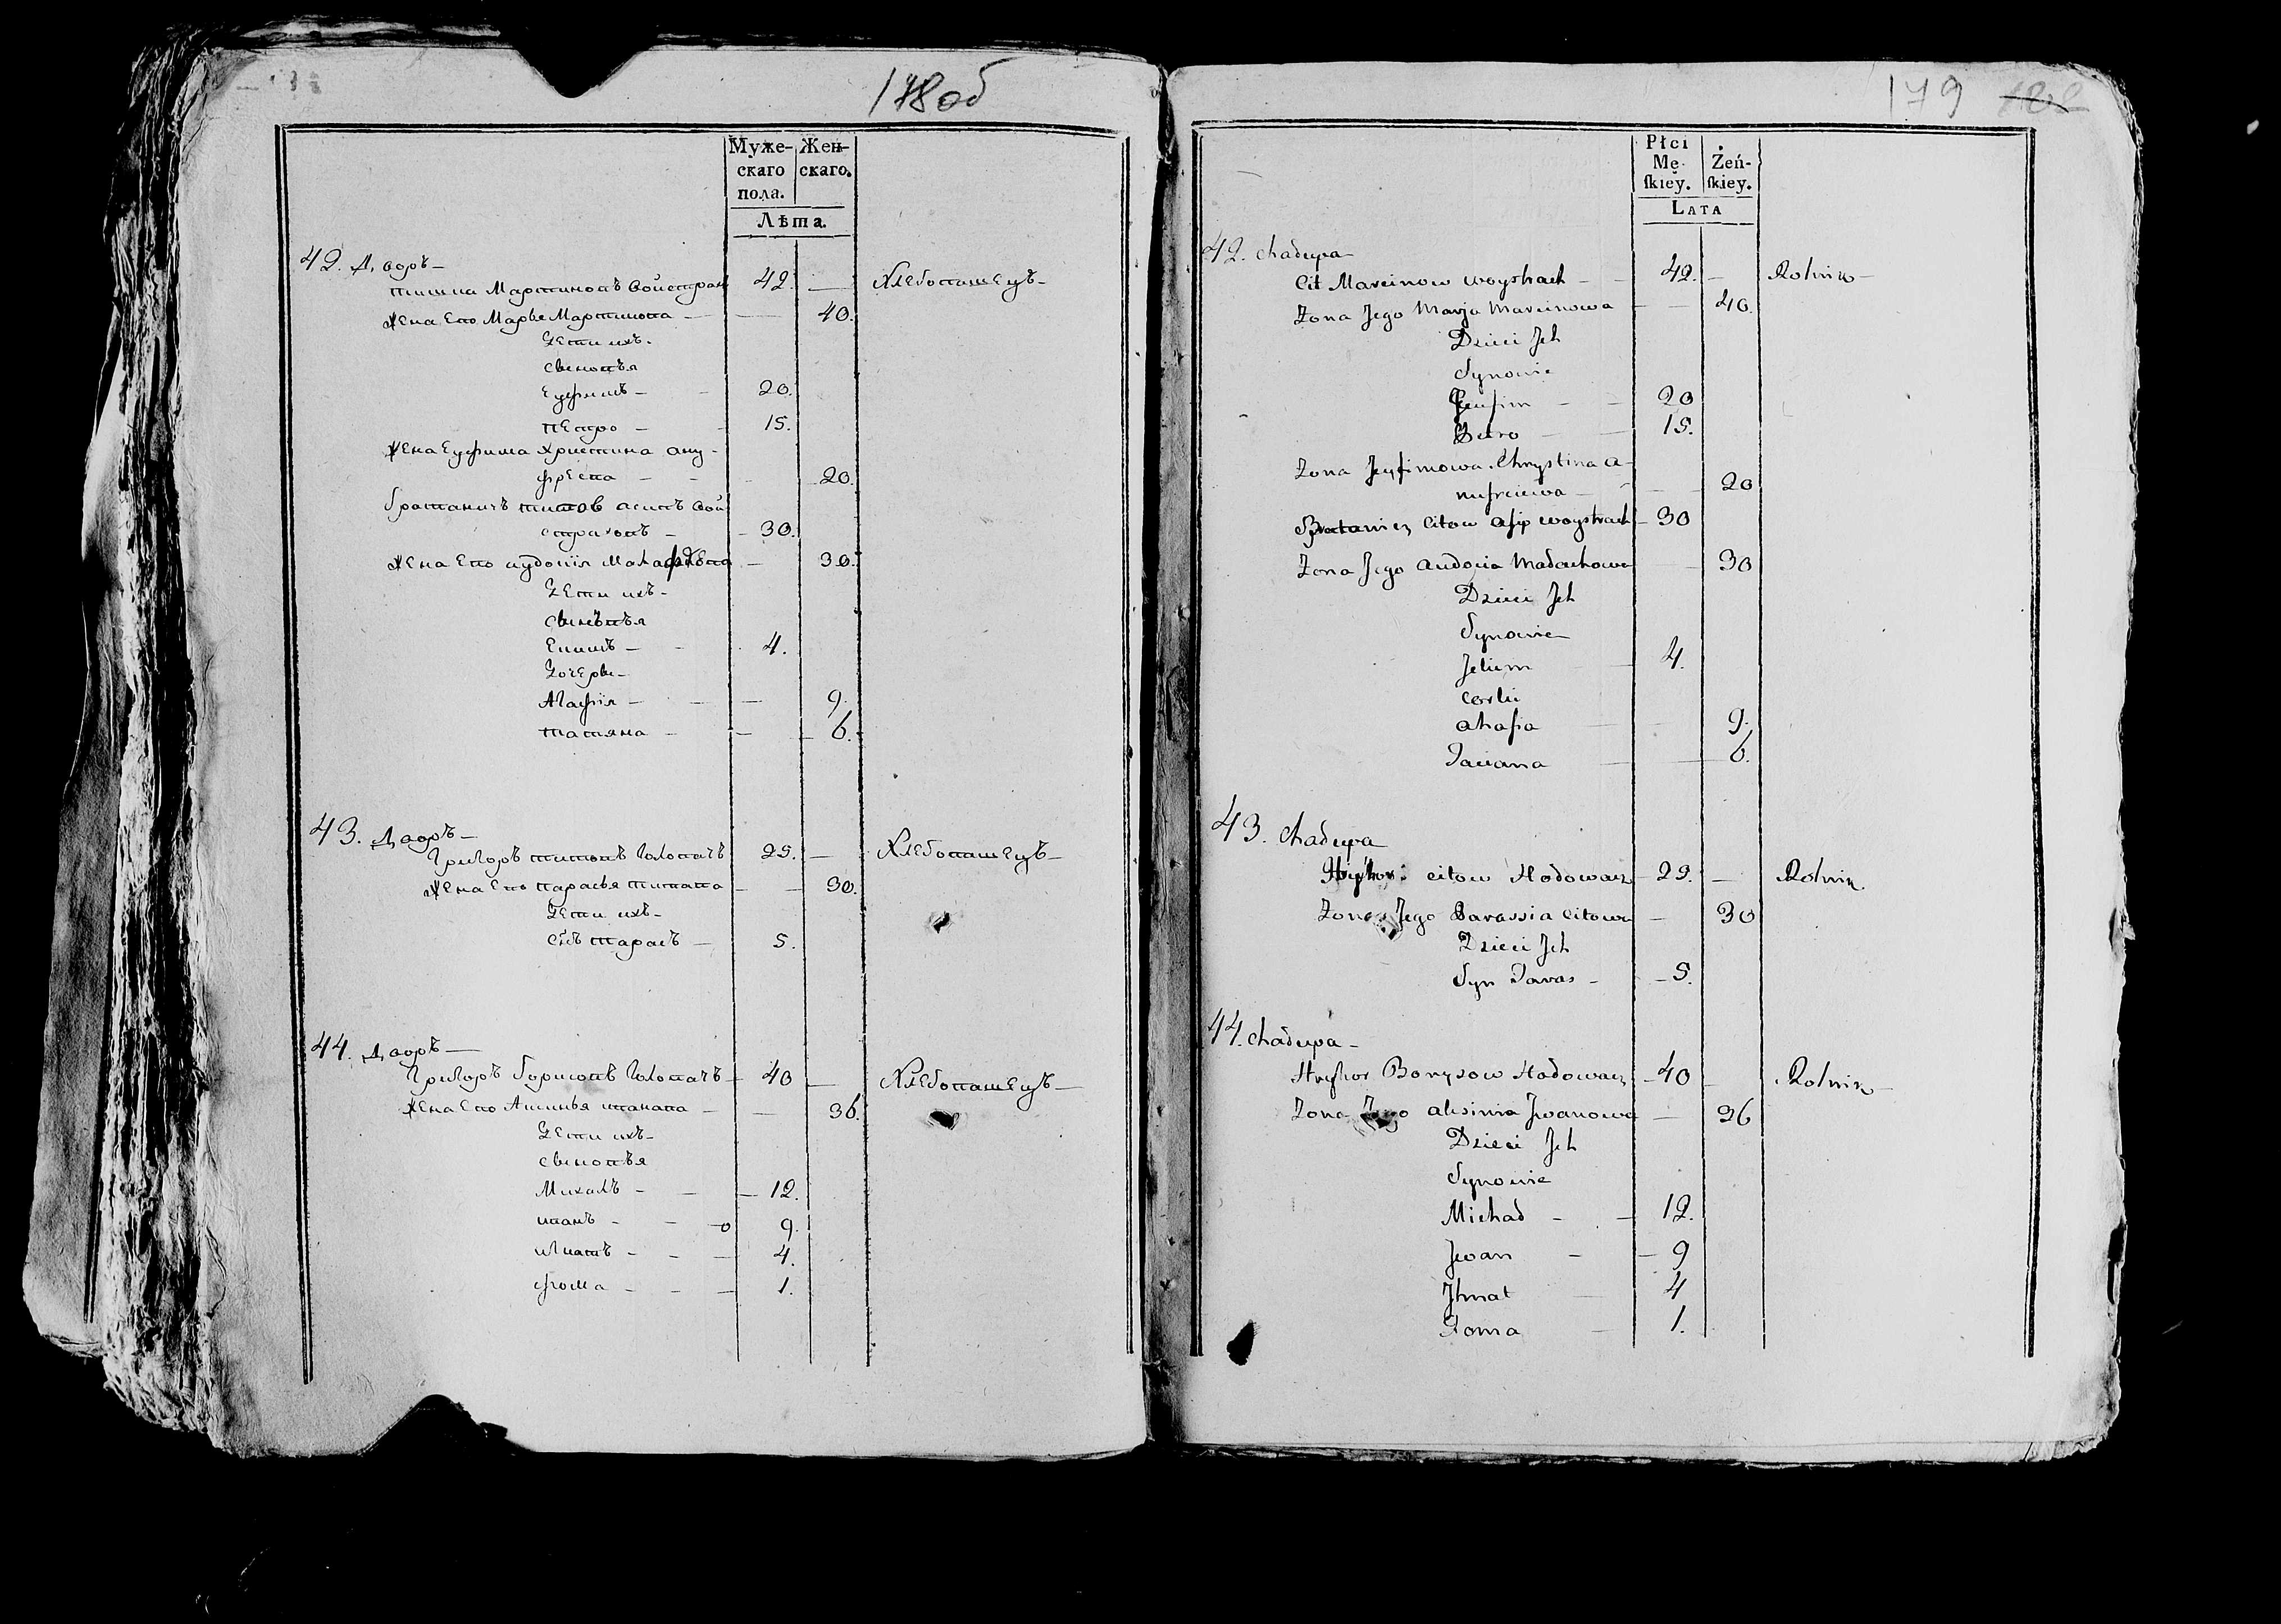 178об
Муже-
скаго
пола.
Жен-
скаго.
Лѣта.
42. Дворъ —
Титка Мартиновъ Войстрах 42. — Хлебопашецъ —
жена Его Марья Мартинова — 40.
Дети ихъ.
сыновья
Еуфимъ — 20.
Петро — 15.
жена Еуфима Христина ану-
фрЕева — 20.
братаничъ титов асипъ вой
страховъ — 30.
жена Его аудоція — 30.
Дети ихъ —
сыновья
Еһимъ — 4.
Дочерьи —
Агафія — 9.
татяна — 6.
43. Дворъ —
Григоръ титовъ Головачъ 25. — Хлебопашецъ —
жена Его парасья титава — 30.
Дети ихъ —
Сынъ тарасъ — 5.
44. Дворъ —
Григоръ борисовъ Головачъ — 40 — Хлебопашецъ —
жена Его Аксинья иванава — 36.
Дети ихъ —
сыновья
Михалъ — 12.
иванъ — 9.
игнатъ — 4.
фома — 1.
179
Płci
Mę-
ſkiey.
Żeń-
ſkiey.
Lata
42. Chałupa
Cit Marcinow Woystrach — 42. — Rolnik —
Zona Jego Marja Marcinowa — 40.
Dzieci Jch
Synowie
Jeufim — 20
Petro — 15.
Zona Jeufimowa Chrystina A-
nufreiewa — 20
Brataniez Citow Asip Woystrach — 30
Zona Jego Audocia Małachowa 30
Dzieci Jch
Synowie
Jelim 4.
Corki
Ahafia 9.
Taciana 6.
43. Chałupa
Hryhor Citow Hołowacz — 25. — Rolnik.
Zona Jego Parassia Citowa — 30
Dzieci Jch
Syn Taras — 5.
44. Chałupa —
Hryhor Borysow Hołowacz — 40 — Rolnik —
Zona Jego Aksinia Jwanowa — 36
Dzieci Jch
Synowie
Michał — 12.
Jwan — 9
Jhnat 4
Foma 1.